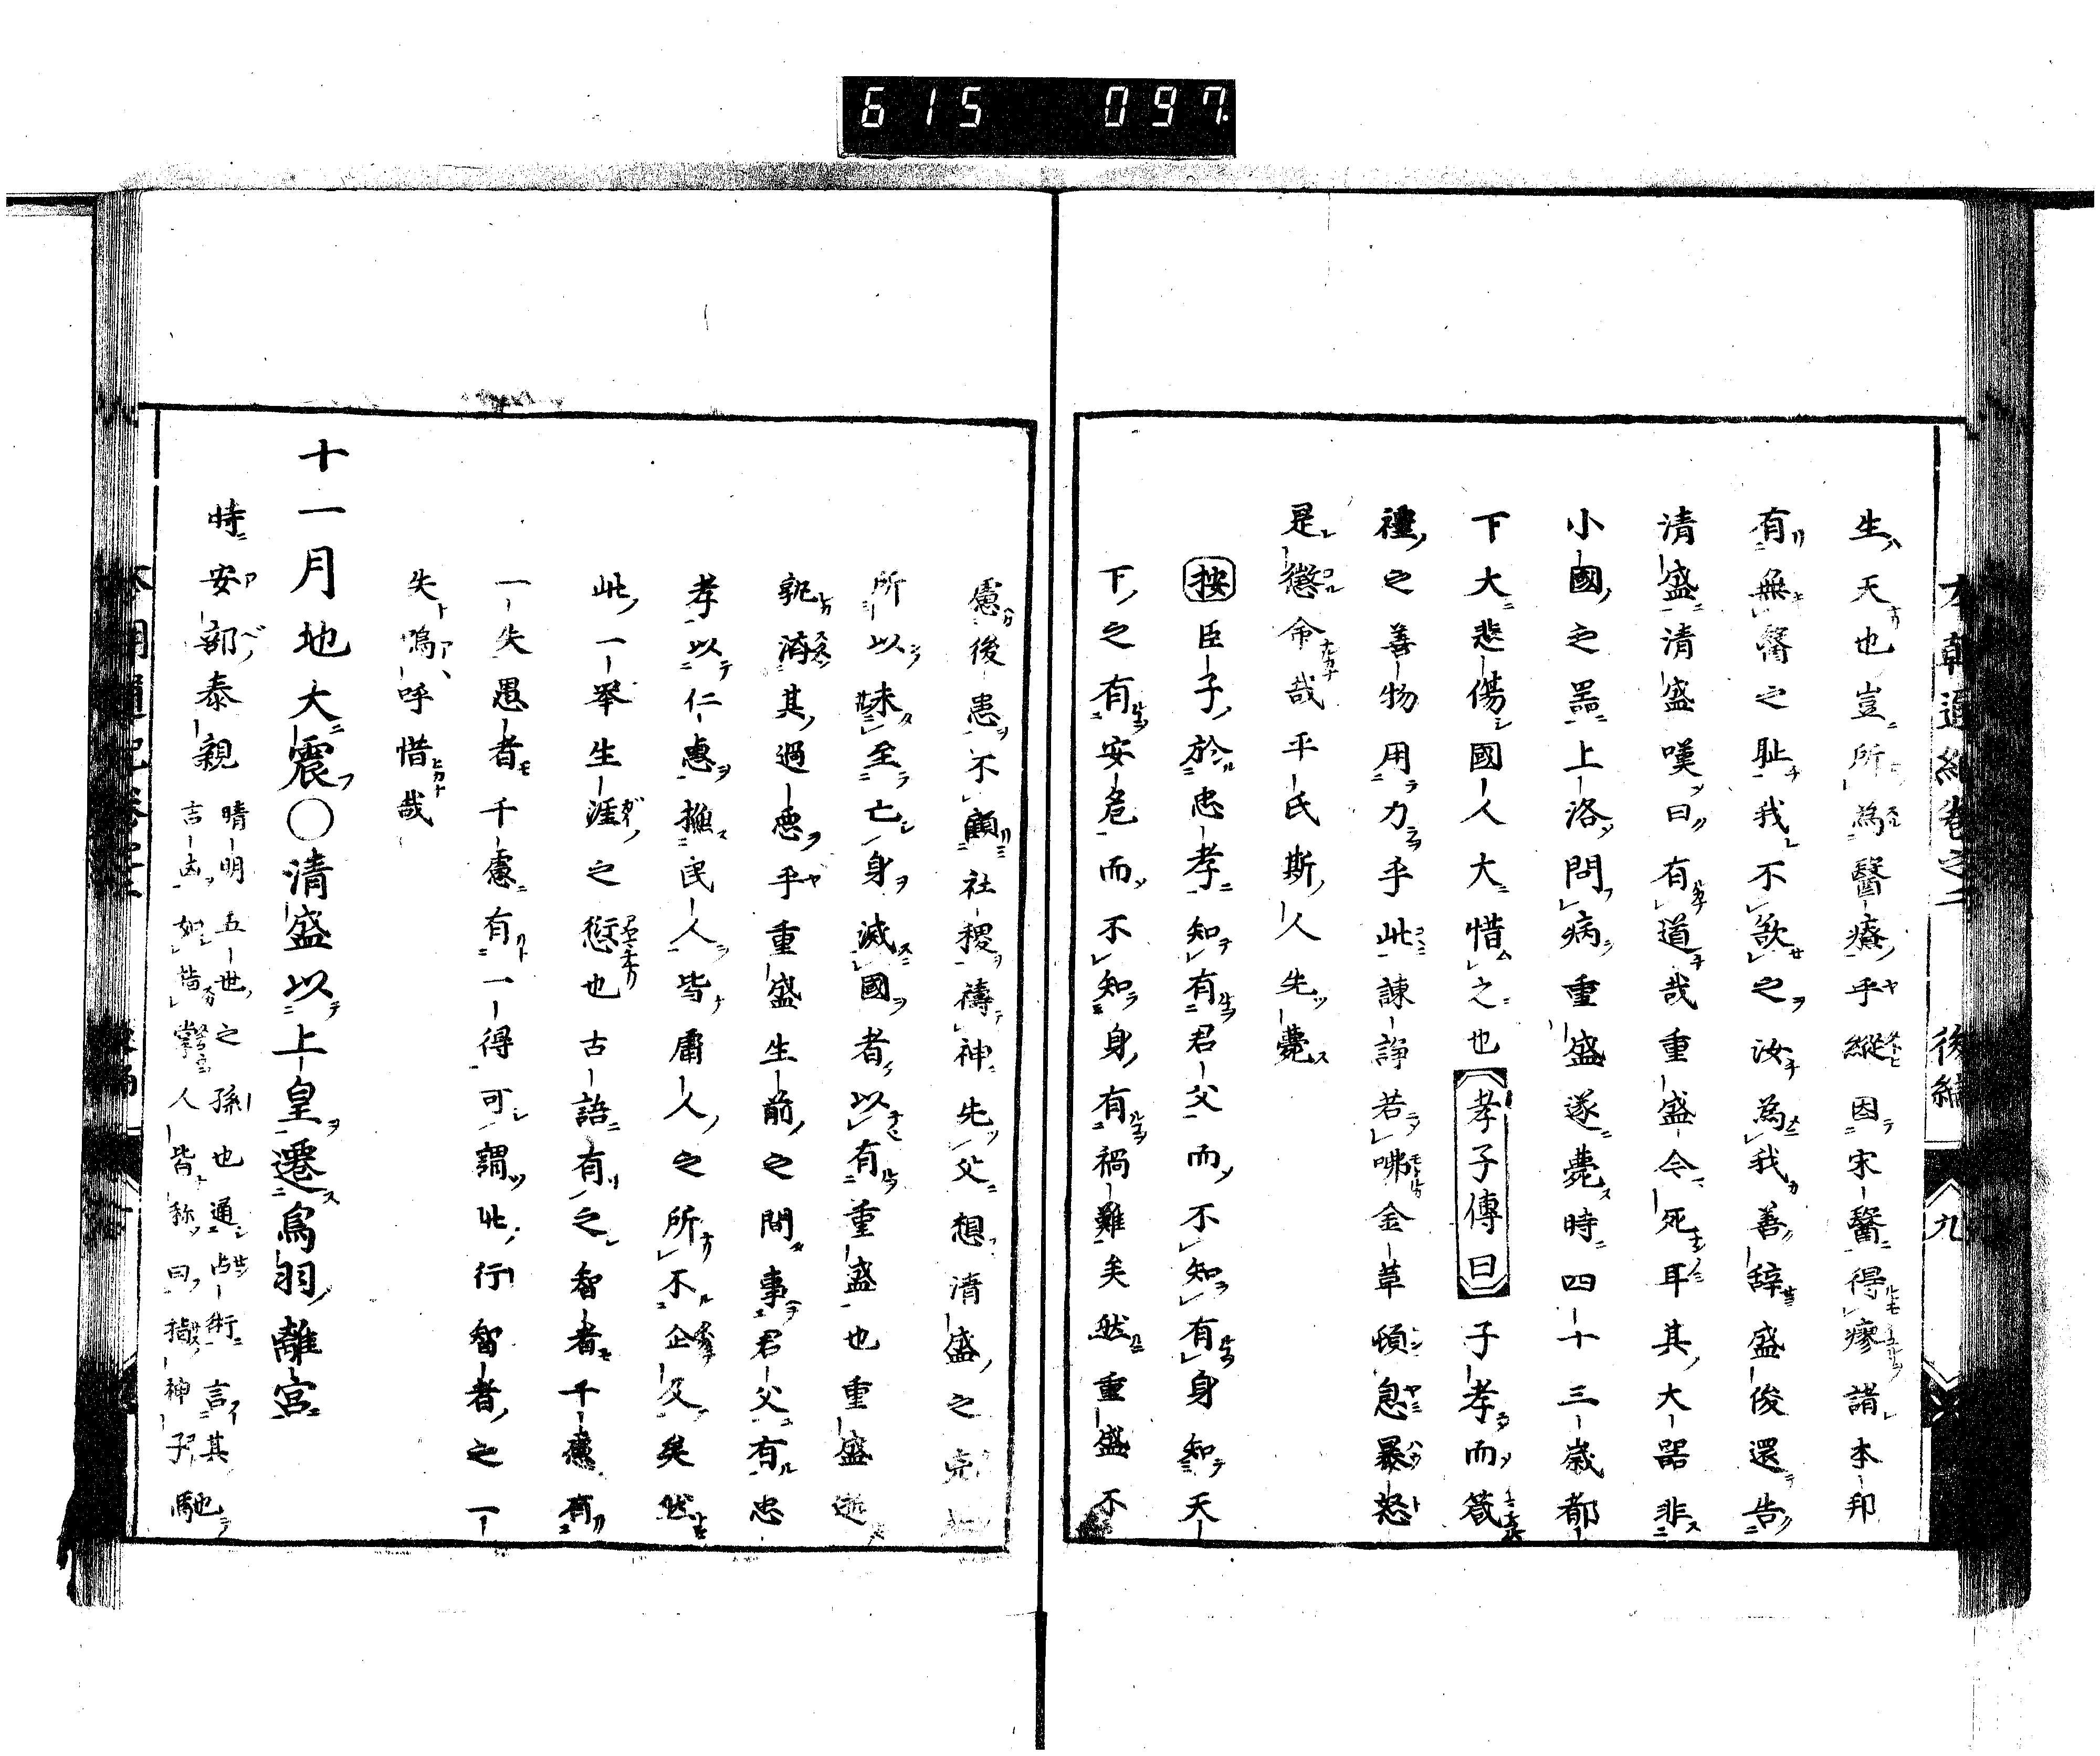 615 097
本朝通紀卷之二 後編 九
生天也豈所為醫療乎縱因宋醫得瘳諸本邦
有無醫之耻我不欲之汝為我善辞盛俊還告
清盛清盛嘆曰有道哉重盛今死耳其大器非
小國之器上洛問病重盛遂薨時四十三歳都
下大悲傷國人大惜之也孝子傳曰子孝而箴
禮之善物用力乎此諫諍若咈金革頓息暴怒
是懲命哉平氏斯人先薨
按臣子於忠孝知有君父而不知有身知天
下之有安危而不知身有禍難矣然重盛不
慮後患不顧社稷禱神先父想清盛之
所以未至亡身滅國者以有重盛也重盛逝
孰済其過悪乎重盛生前之間事君父有忠
孝以仁惠撫民人皆庸人之所不企及矣然
此一举生涯之愆也古語有之智者千慮有
一失愚者千慮有一得可謂此行智者之一
失嗚呼惜哉
十一月地大震○清盛以上皇遷鳥羽離宮
時安部泰親晴明五世之孫也通占術言其
言吉凶如指掌人皆称曰指神子馳